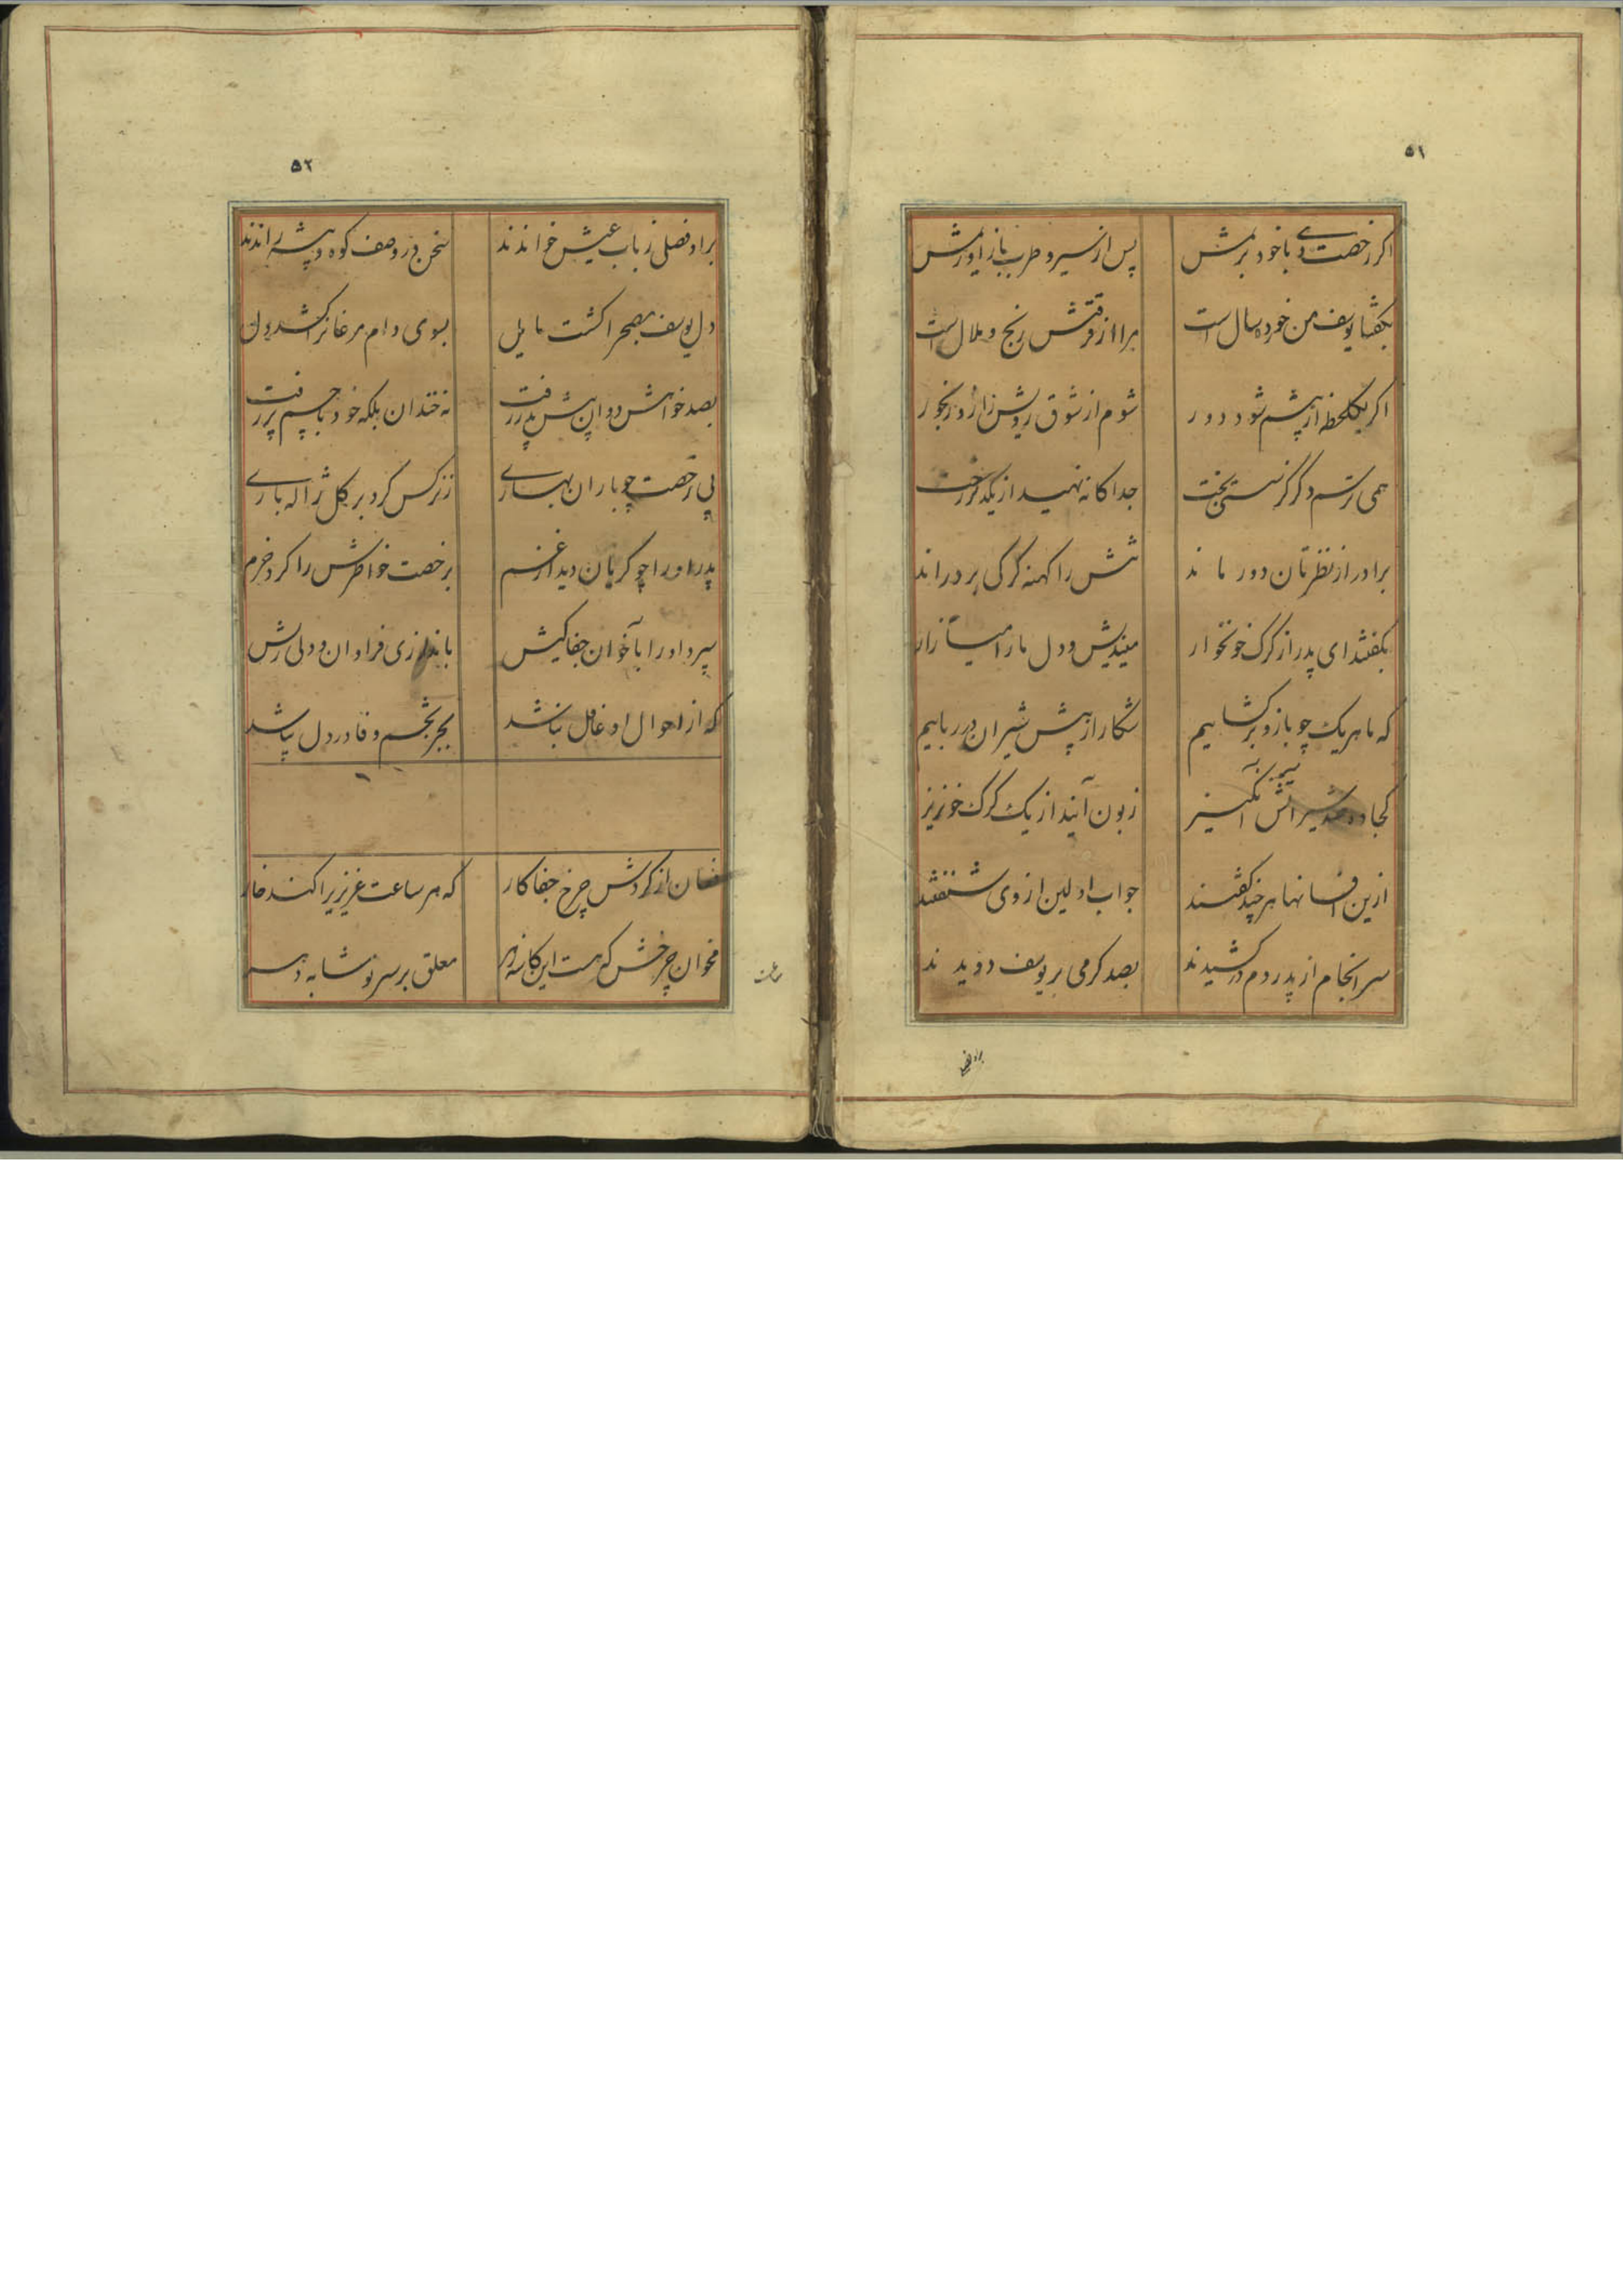 ۵۱
اکر رخصت دهی با خود بریمش پس از سیر و طرب باز اوریمش
بکفتا یوسف من خورد سال است مرا از فرقتش رنج و ملال است
اکر یکلحظه از پیشم شود دور شوم از شوق رویش زار و رنجور
همی ترسم دکر کز سستی بخت جدا کانه نهید از یکدکر رخت
برادر از نظرتان دور ماند تنش را کهنه کرکی بر دراند
بکفتند ای پدر از کرک خونخوار میندیش و دل ما را میازار
که ما هریک چو بازو برکشاییم شکار از پیش شیران در رباییم
کجا ده شیر اتش انکیز زبون آیند از یک کرک خونریز
ازین افسانها هر چند کفتند جواب اولین از وی شنفتند
سرانجام از پدر دم در کشیدند بصد کرمی بر یوسف دویدند
۵۲
بر او فصلی ز باب عیش خواندند سخن در وصف کوه و پیشه راندند
دل یوسف بصحرا کشت مایل بسوی دام مرغانرا کشد دل
بصد خواهش دوان پیش پدر رفت نه خندان بلکه خود با چشم پر رفت
پی رخصت چو باران بهاری ز نرکس کرد بر کل ژاله باری
پدر او را چو کریان دید از غم برخصت خواطرش را کرد خرم
سپرد او را بآخوان جفاکیش باندرزی فراوان و دلی ریش
که از احوال او غافل نباشد بجز تخم وفا در دل نپاشد
فغان از کردش چرخ جفا کار که هر ساعت عزیزیرا کند خار
مخوان چرخش که هست این کاسه زهر معلق بر سر نوشابه دهر